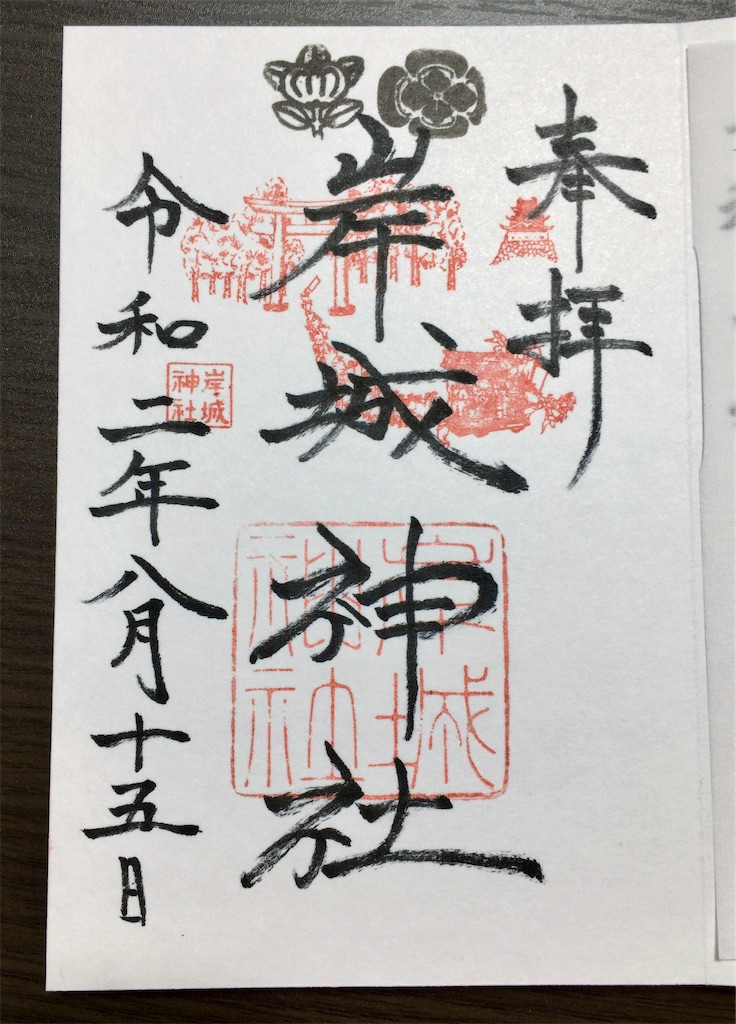 奉拝
岸城神社
岸城
神社
岸城
神社
令和二年八月十五日